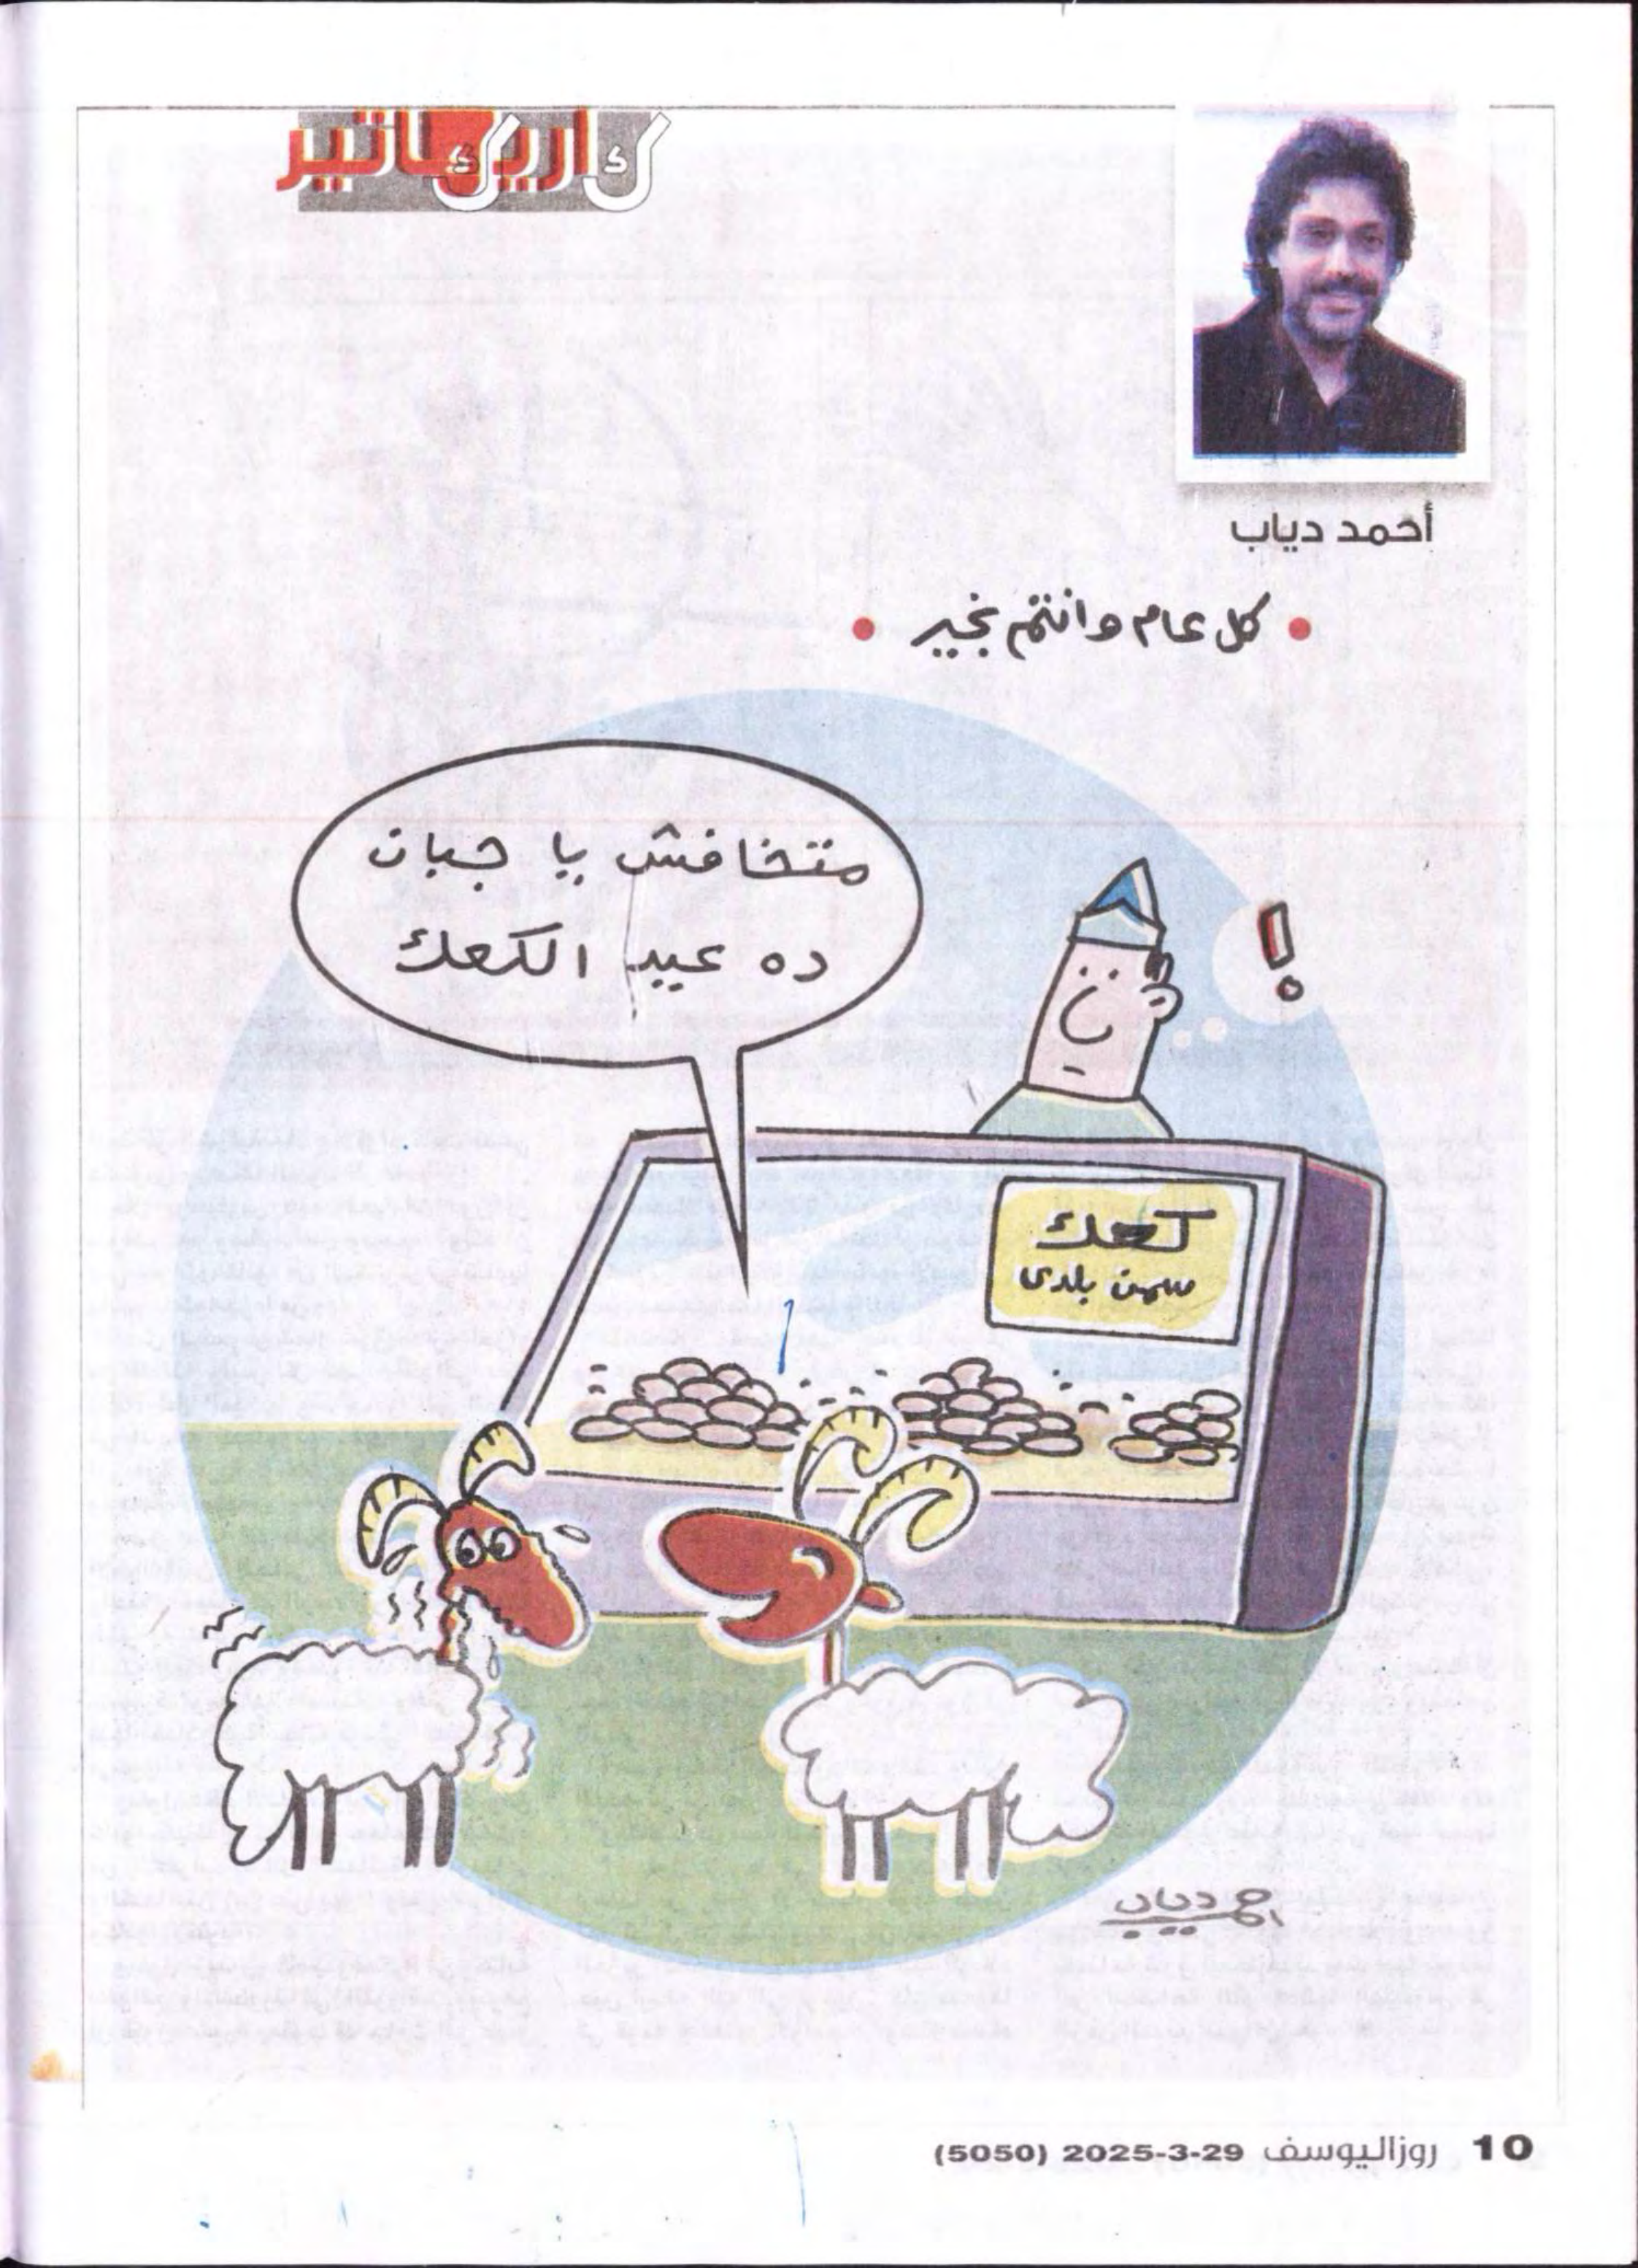 كاريكاتير
أحمد دياب
• كل عام وانتم بخير •
متخافش يا جبان
ده عيد الكعك
!
كعك
سمن بلدى
احمد دياب
10 روزاليوسف 29-3-2025 (5050)